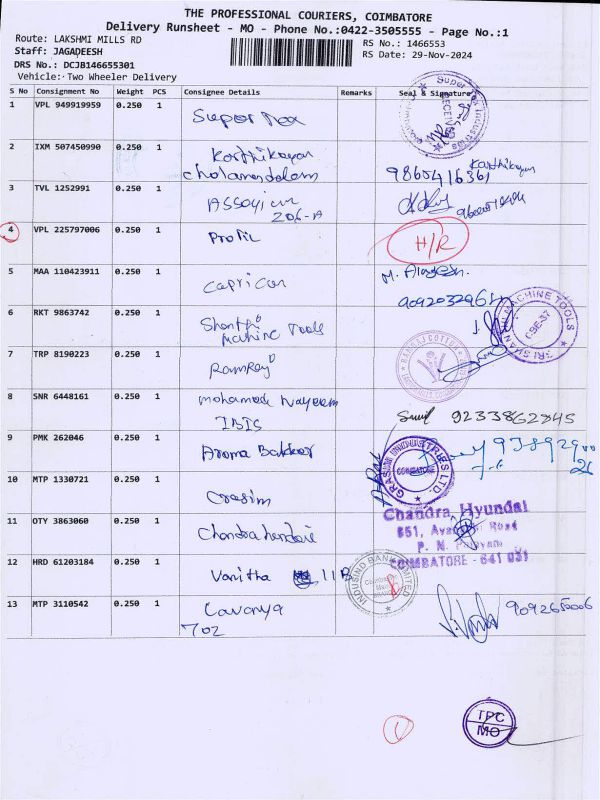 THE PROFESSIONAL COURIERS, COIMBATORE
Delivery Runsheet - MO - Phone No.:0422-3505555 - Page No.:1
Route: LAKSHMI MILLS RD
Staff: JAGADEESH
DRS No.: DCJB146655301
Vehicle: Two Wheeler Delivery
RS No.: 1466553
RS Date: 29-Nov-2024
S No Consignment No Weight PCS Consignee Details Remarks Seal & Signature
1 VPL 949919559 0.250 1 Super Tex
2 IXM 507450990 0.250 1 Karthikeyan Karthikeyan
Cholamandalam 9865416361
3 TVL 1252991 0.250 1
206-A
4 VPL 225797006 0.250 1 Profil H/R
5 MAA 110423911 0.250 1 Capricon
9092032968
6 RKT 9863742 0.250 1 Shanthi
Machine Tools
SRI SHANTHI MACHINE TOOLS
CBE-37
7 TRP 8190223 0.250 1 Ramraj
RAMRAJ COTTON
8 SNR 6448161 0.250 1 Mohamed Nayeem
IBIS
Sunil 9233862845
9 PMK 262046 0.250 1 Aroma Bakker
10 MTP 1330721 0.250 1 Grasim
GRASIM INDUSTRIES LTD.
COIMBATORE
11 OTY 3863060 0.250 1
Chandra Hyundai
COIMBATORE - 641 031
12 HRD 61203184 0.250 1 Vanitha 11B
INDUSIND BANK LIMITED
13 MTP 3110542 0.250 1 Lavanya
702
9092650006
TPC
MO
1